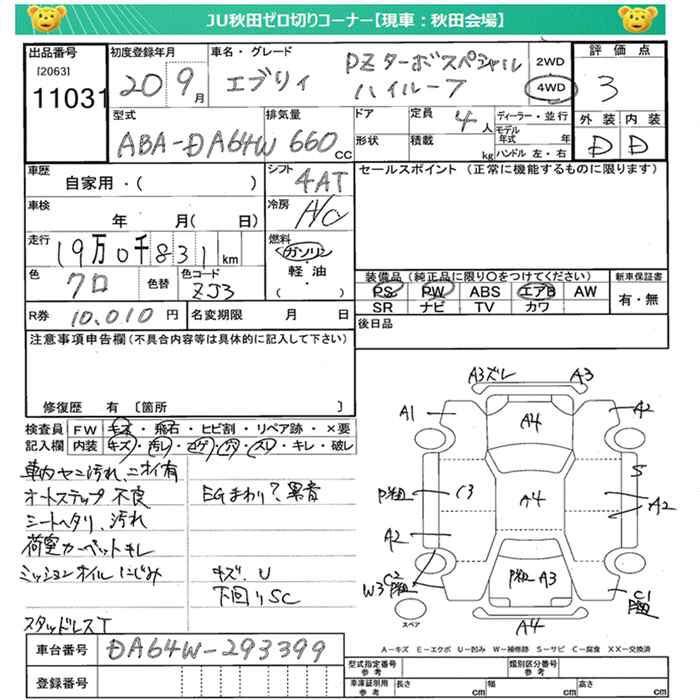 JU秋田ゼロ切りコーナー【現車：秋田会場】
出品番号 初度登録年月 車名・グレード 評価点
[2063] 11031 20 9月 エブリィ PZターボスペシャル ハイルーフ 2WD 4WD 3
型式 排気量 ドア 定員 4人 ディーラー・並行 外装 内装
ABA-DA64W 660cc 形状 積載 kg モデル年式 年 ハンドル 左・右 D D
車歴 自家用・( ) シフト 4AT セールスポイント (正常に機能するものに限ります)
車検 年 月( 日) 冷房 A/C
走行 19万0千831km 燃料 ガソリン・軽油・( )
色 クロ 色替 色コード ZJ3
装備品(純正品に限り○をつけてください) 新車保証書
PS PW ABS エアB AW 有・無
SR ナビ TV カワ
R券 10,010円 名変期限 月 日 後日品
注意事項申告欄(不具合内容等は具体的に記入して下さい)
修復歴 有 〔箇所 〕
検査員 FW キズ・飛石・ヒビ割・リペア跡・×要
記入欄 内装 キズ・汚レ・コゲ・穴・スレ・キレ・破レ
車内ヤニ汚れ、ニオイ有
オートステップ不良
シートヘタリ、汚れ
荷室カーペットキレ
ミッションオイルにじみ
スタッドレスT
EGまわり?異音
キズ、U
下回りSC
A3ズレ A3
A1 A4 A2
S
P粗 C3 A4 A2
A2
W3 C2 P粗 P粗 A3 C1 P粗
スペア A4
A－キズ E－エクボ U－凹み W－補修跡 S－サビ C－腐食 XX－交換済
車台番号 DA64W-293399
登録番号
型式指定番号 参考 類別区分番号 参考
車庫証明用 参考 長さ cm 幅 cm 高さ cm